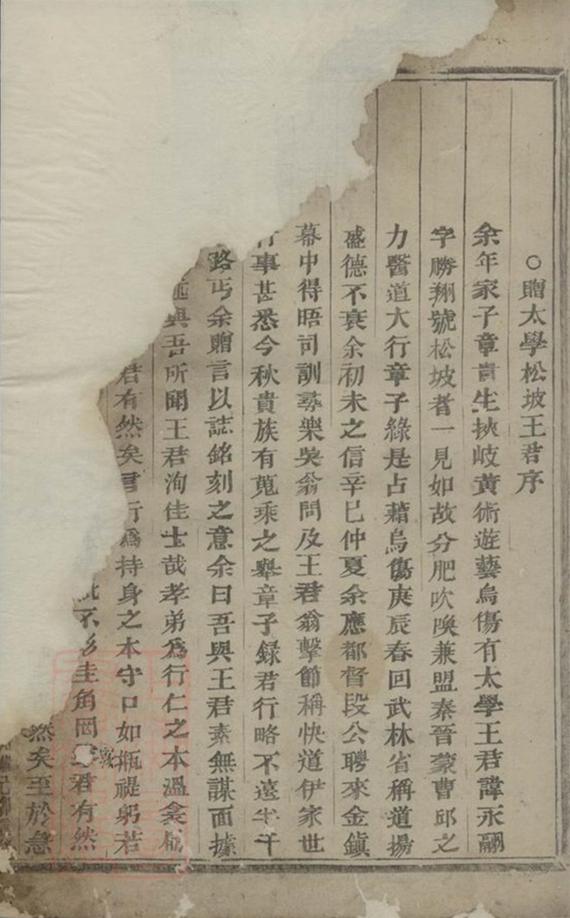 ○贈太學松坡王君序
余年家子章貢生挾岐黃術遊藝烏傷有太學王君諱永翮
字勝翔號松坡者一見如故分肥吹喚兼盟秦晉蒙曹邱之
力醫道大行章子緣是占藉烏傷庚辰春回武林省稱道揚
盛德不衰余初未之信辛巳仲夏余應都督段公聘來金鎮
幕中得晤司訓尋樂吳翁問及王君翁擊節稱快道伊家世
行事甚悉今秋貴族有蒐乘之舉章子録君行略不遠半千
路丐余贈言以誌銘刻之意余曰吾與王君素無謀面據
與吾所聞王君洵佳士哉孝弟為行仁之本溫
君有然矣言行為持身之本守口如瓶禔躬若
不形圭角同
君有然
然矣至於急